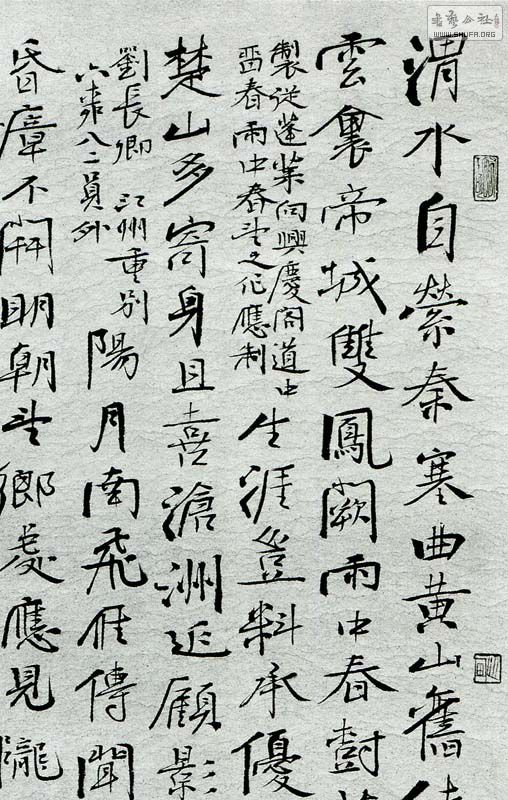 WWW.SHUFA.ORG
渭水自縈秦塞曲黄山舊
雲裏帝城雙鳳闕雨中春樹
製從蓬萊向興慶閣道中
畱春雨中春望之作應制
生涯豈料承優
楚山多寄身且喜滄洲近顧影
劉長卿 江州重別
六柳八二員外
陽月南飛雁傳聞
昏瘴不開明朝望鄉處應見隴